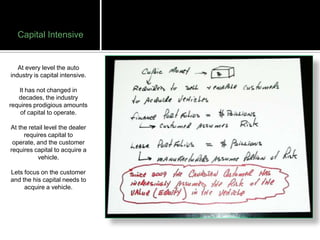 Capital Intensive
At every level the auto
industry is capital intensive.
It has not changed in
decades, the industry
requires prodigious amounts
of capital to operate.
At the retail level the dealer
requires capital to
operate, and the customer
requires capital to acquire a
vehicle.
Lets focus on the customer
and the his capital needs to
acquire a vehicle.
Cubic Money
Required to sell / enable customers
to Acquire vehicles
Finance Portfolios = $ Billions
Customer Assumes Risk
Lease Portfolios = $ Billions
manufacturers Assume Portion of Risk
Since 2009 the Customer Has
increasingly Assumed the Risk of the
Value (Equity) in Vehicle)